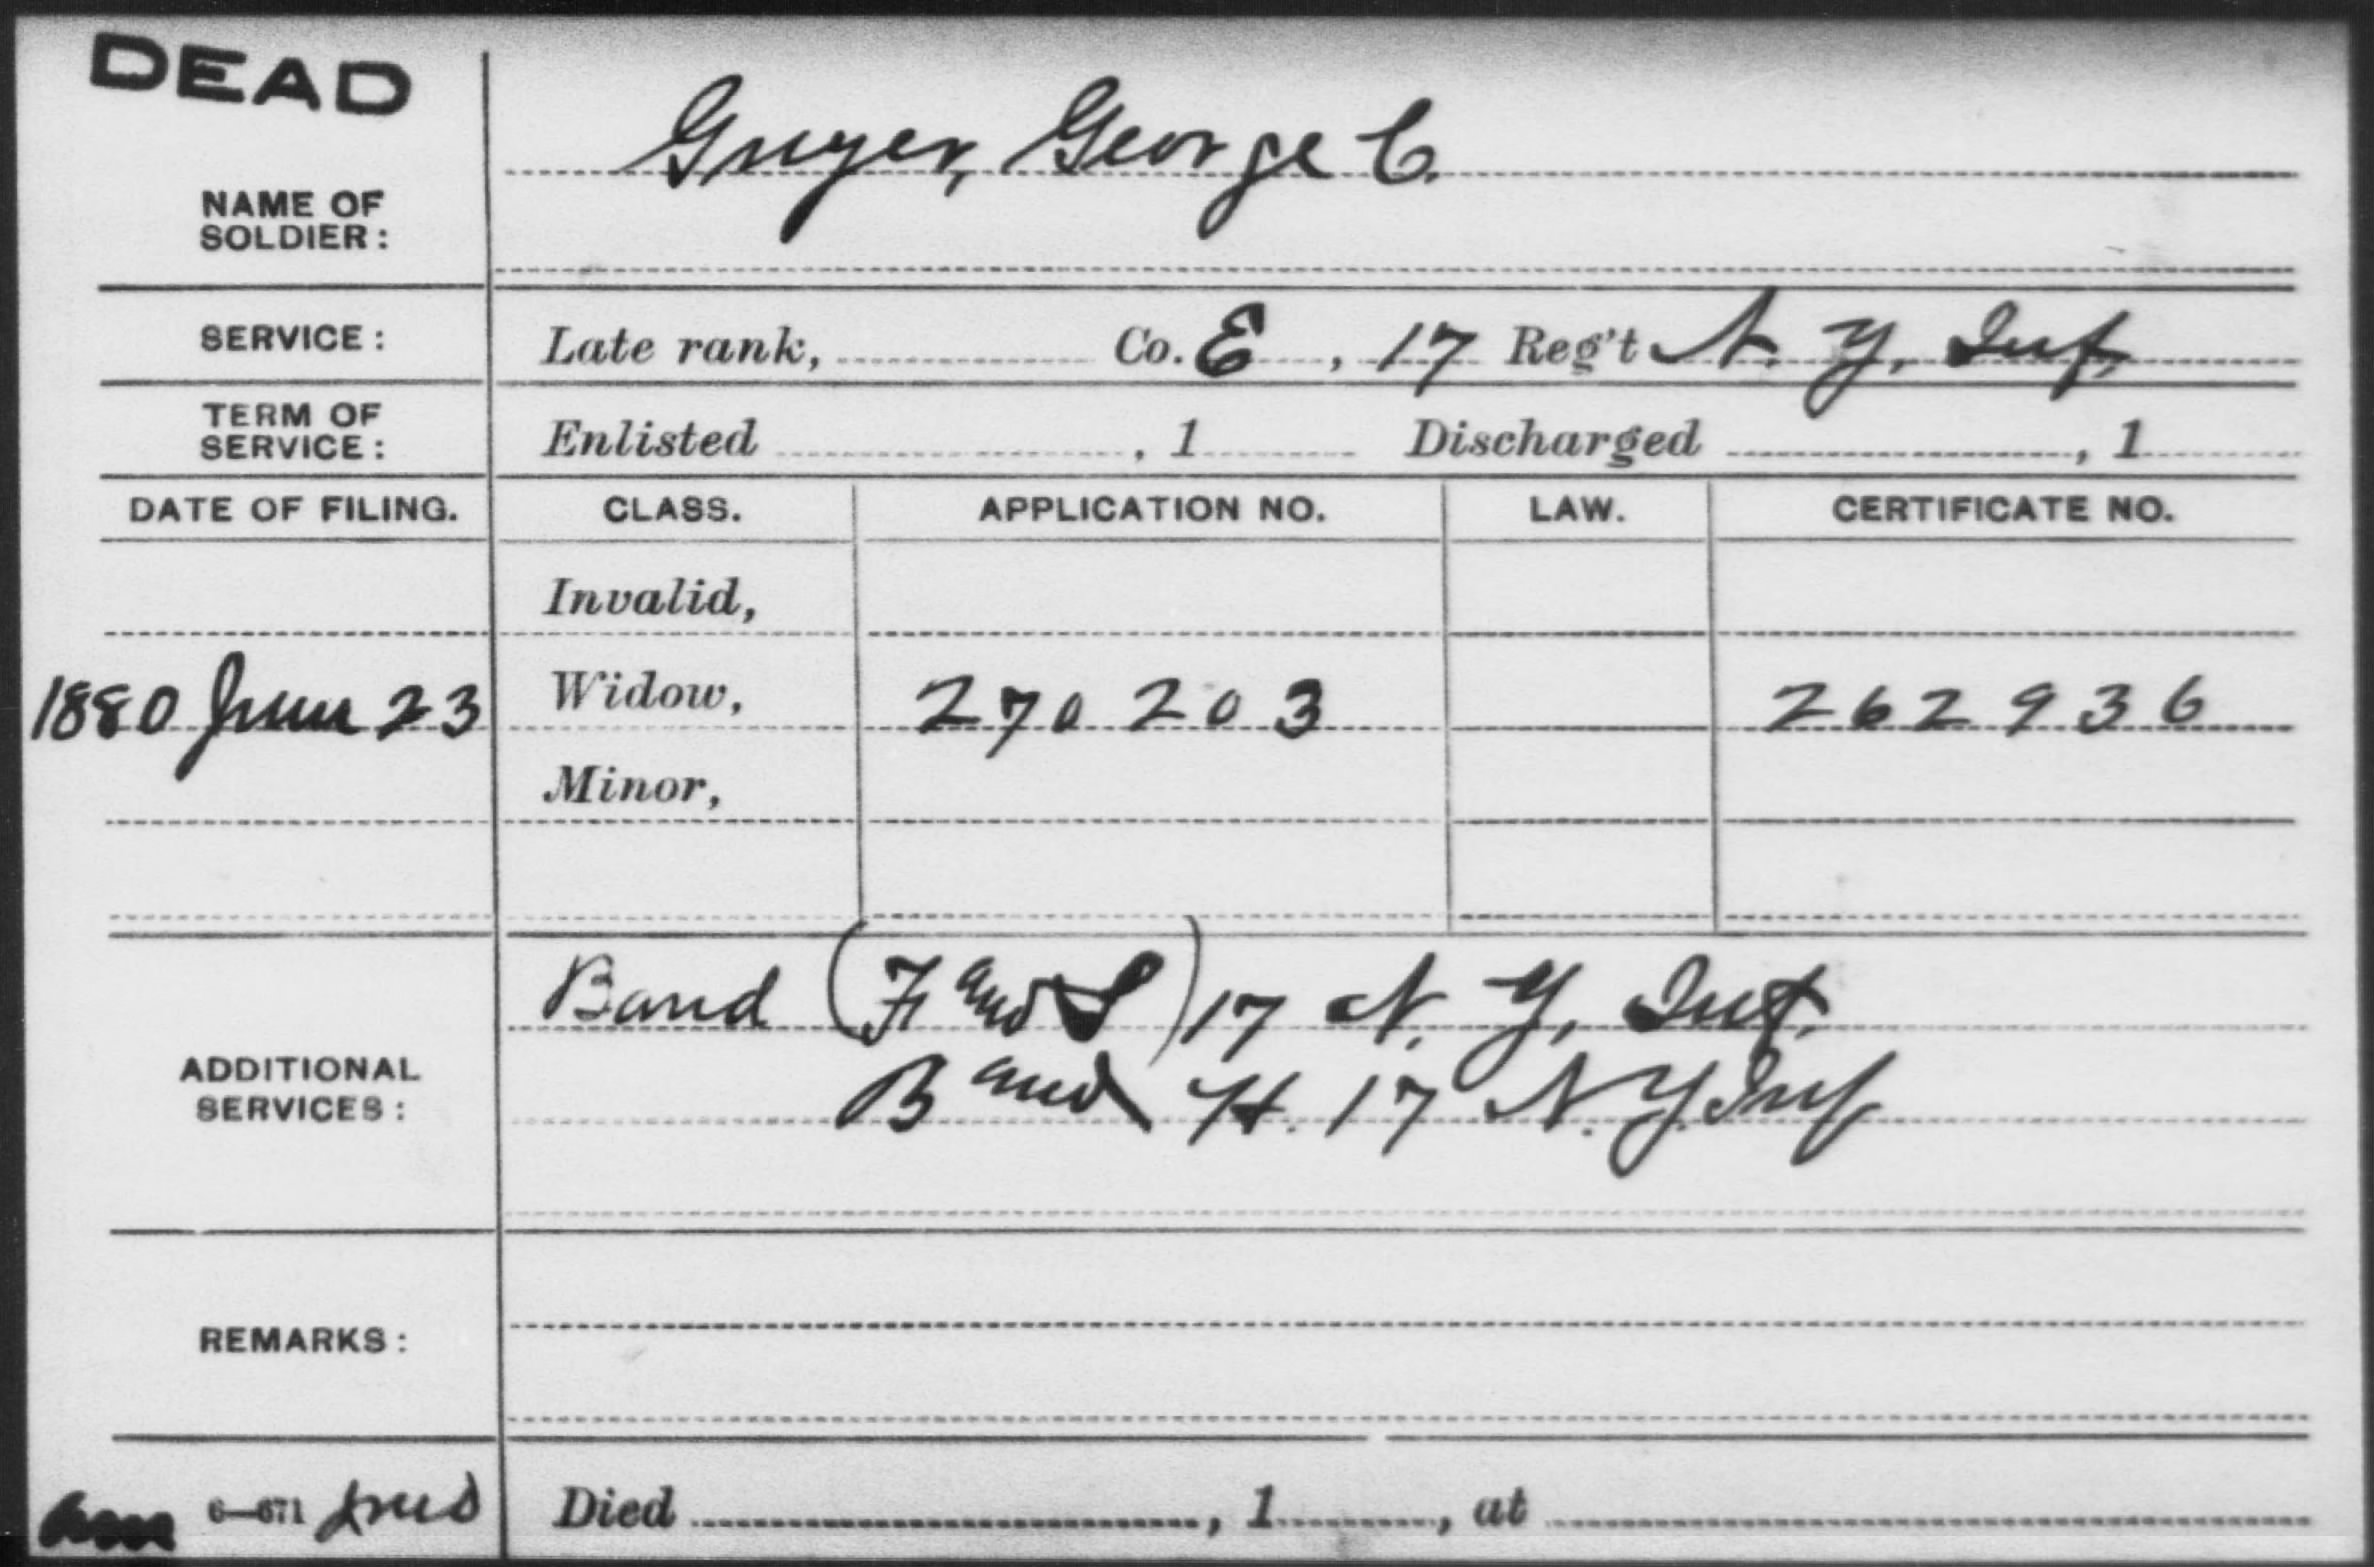 DEAD
NAME OF
SOLDIER:
Guyer, George C.
SERVICE: Late rank, Co. E, 17 Reg't N. Y. Inf.
TERM OF
SERVICE: Enlisted , 1 Discharged , 1
DATE OF FILING. CLASS. APPLICATION NO. LAW. CERTIFICATE NO.
Invalid,
1880 June 23 Widow, 270203 262936
Minor,
ADDITIONAL
SERVICES:
Band (F and S) 17 N. Y. Inf.
B and H. 17 N. Y. Inf
REMARKS:
6—671 Died , 1 , at